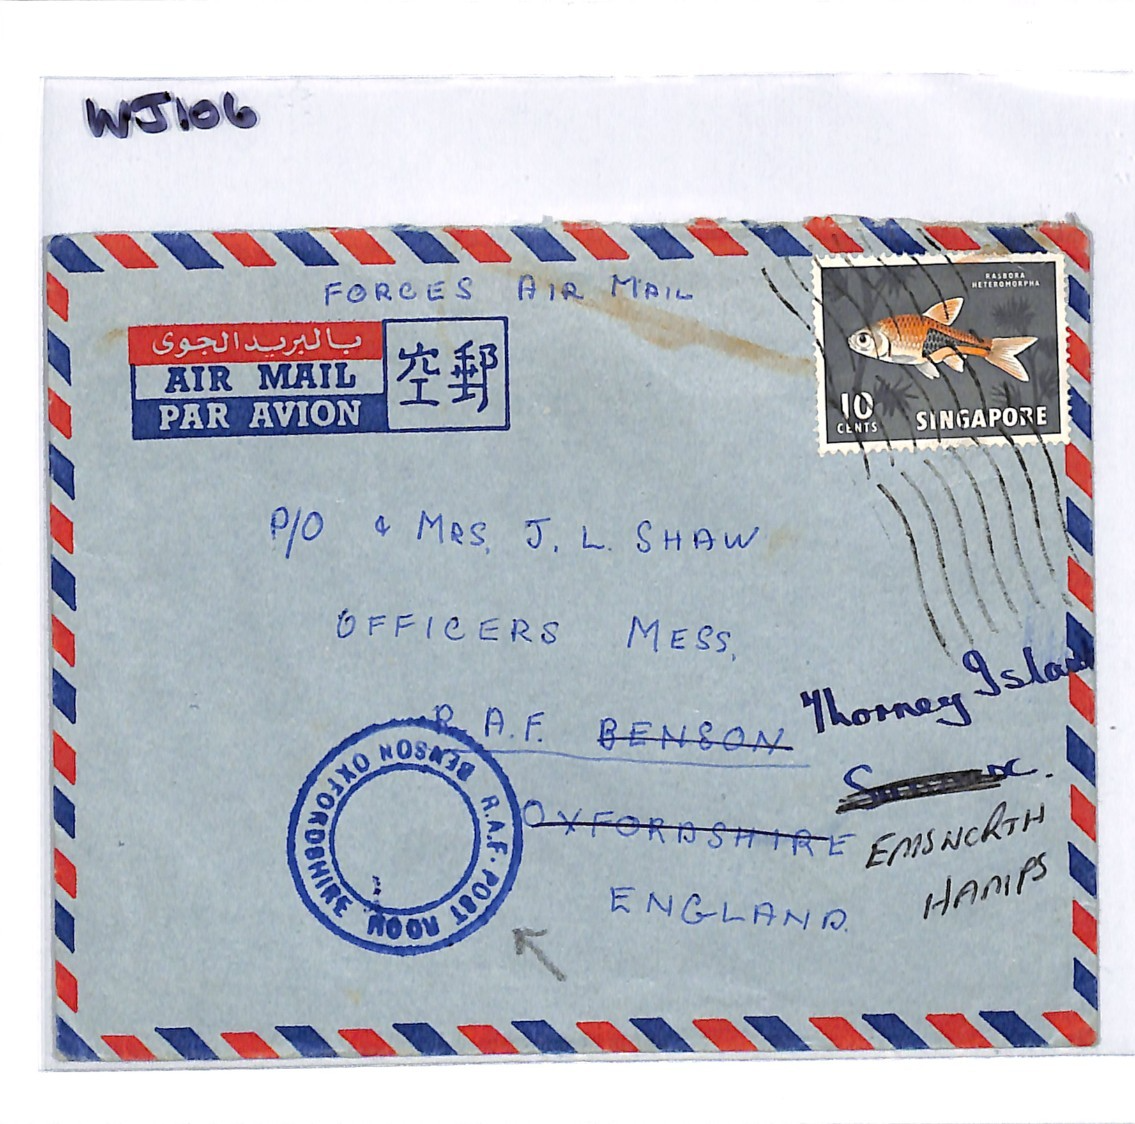 WJ106
FORCES AIR MAIL
RASBORA
HETEROMORPHA
بالبريد الجوى
AIR MAIL
PAR AVION
空郵
10
CENTS
SINGAPORE
P/O & MRS. J. L. SHAW
OFFICERS MESS,
R.A.F. BENSON Thorney Island
OXFORDSHIRE
EMSWORTH
HAMPS
ENGLAND.
R.A.F. POST ROOM. BENSON OXFORDSHIRE.